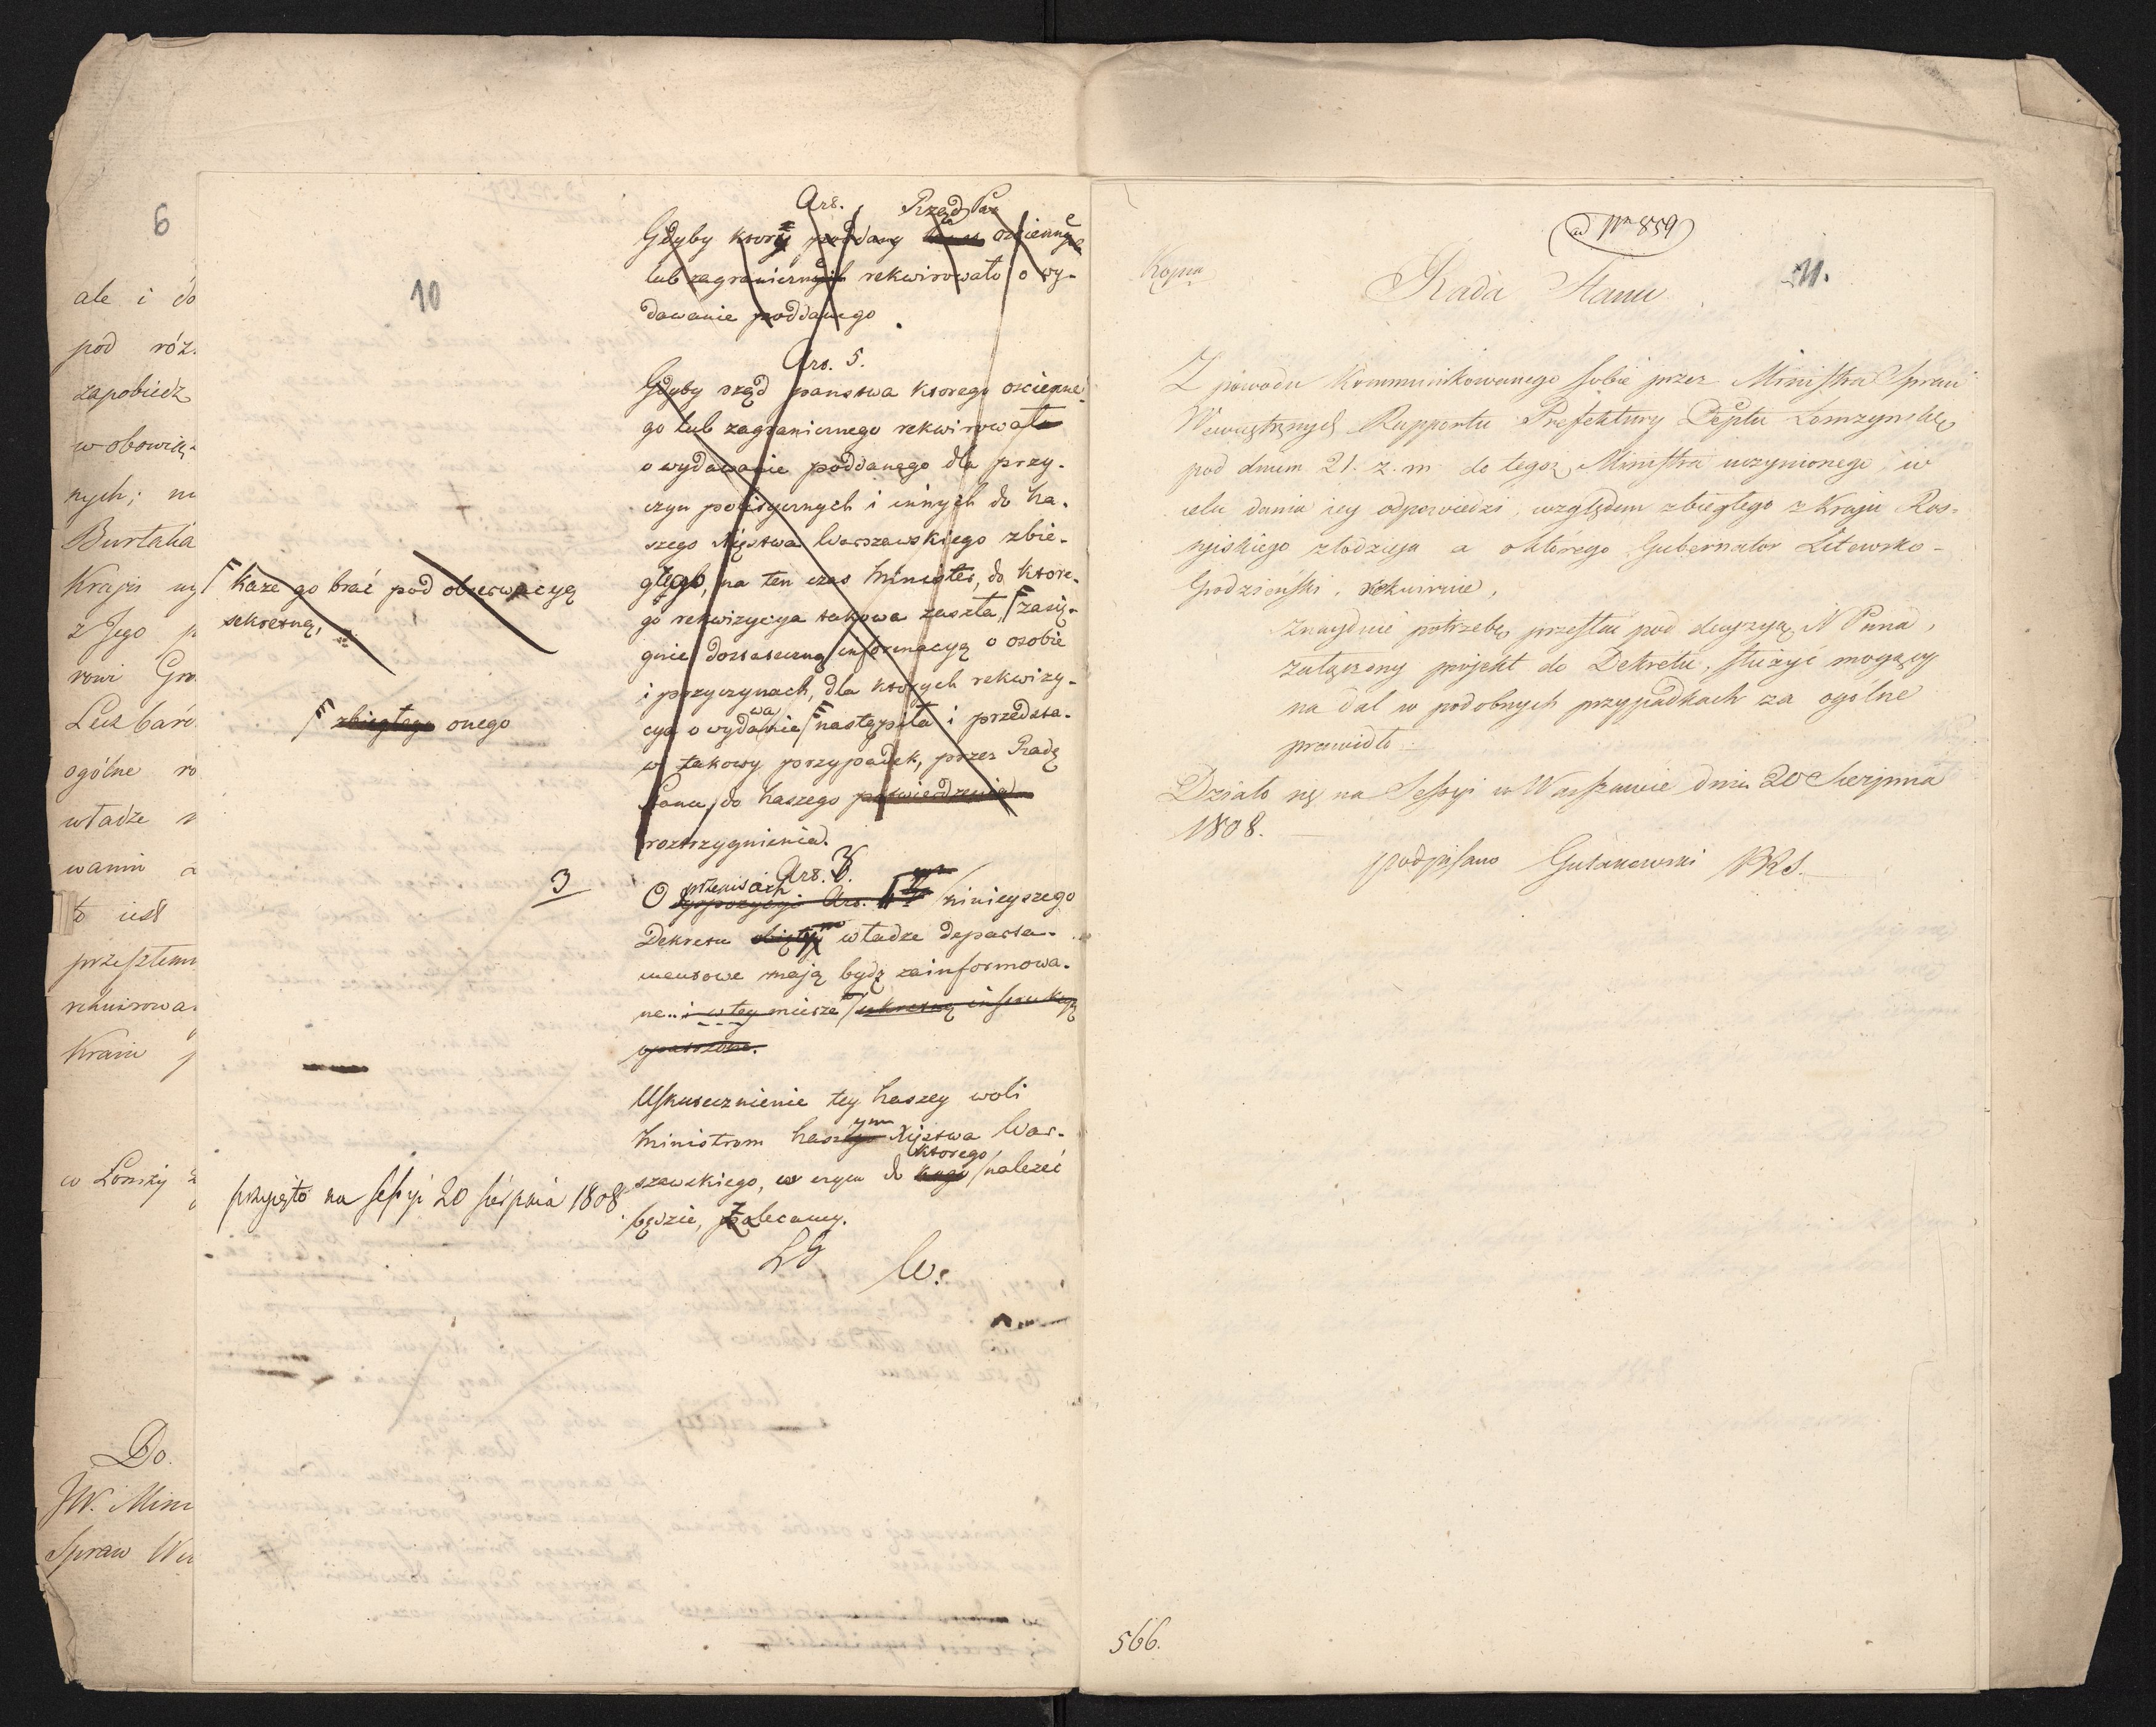 6
ale i do
pod róż.
zapobiedz
w obowią-
nych; m
Burtaka
Kraju wy
z Jego p
rowi Gro
Lecz bar
ogólne ro
władze
wanin
to iest
przesztem
rekwirowa.
Kraiu
w Łomży
Do.
JW. Mini
Spraw We
10
Art.
Rząd Pań
Gdyby który poddany ościennych
lub zagranicznych rekwirowało o wy-
dawanie poddanego
Art. 5.
Gdyby rząd państwa którego ościenne-
go lub zagranicznego rekwirował
o wydawanie poddanego dla przy-
czyn politycznych i innych do Na-
szego Xięstwa Warszawskiego zbie-
głego, na ten czas Minister, do które-
go rekwizycya takowa zaszła, zasię-
gnie dostateczną informacyą o osobie
i przyczynach, dla których rekwizy-
cya o wydawanie następiła i przedsta-
wi takowy przypadek, przez Radę
Stanu, do Naszego potwierdzenia
rozstrzygnienia.
każe go brać pod obserwacyą
sekretną,
zbiegłego onego
3
Art. 3.
przepisach
O dyspozycyi Art. ninieyszego
Dekretu władze departa-
mentowe mają być zainformowa-
ne i w tey mierze sekretną instrukcyą
opatrzone.
Uskutecznienie tey Naszey woli
Ministrom Naszym Xięstwa War-
szawskiego, w czym do kogo którego należeć
będzie, zalecamy.
przyjęto na sessyi 20 sierpnia 1808
ŁG
W.
ad Nrm 859
Kopia
11.
Rada Stanu
Z powodu Kommunikowanego sobie przez Ministra Spraw
Wewnętrznych Rapportu Prefektury Deptu Łomżyńskiego
pod dniem 21. z. m. do tegoż Ministra uczynionego, w
celu dania iey odpowiedzi, względem zbiegłego z Kraju Ros-
syiskiego złodzieja a o którego Gubernator Litewsko-
Grodzieński, rekwiruie,
znayduie potrzebę przesłać pod decyzyą N Pana,
załączony projekt do Dekretu, służyć mogący
na dal w podobnych przypadkach za ogólne
prawidło.
Działo się na Sessyi w Warszawie dnia 20 Sierpnia
1808.
podpisano Gutakowski PRS.
566.